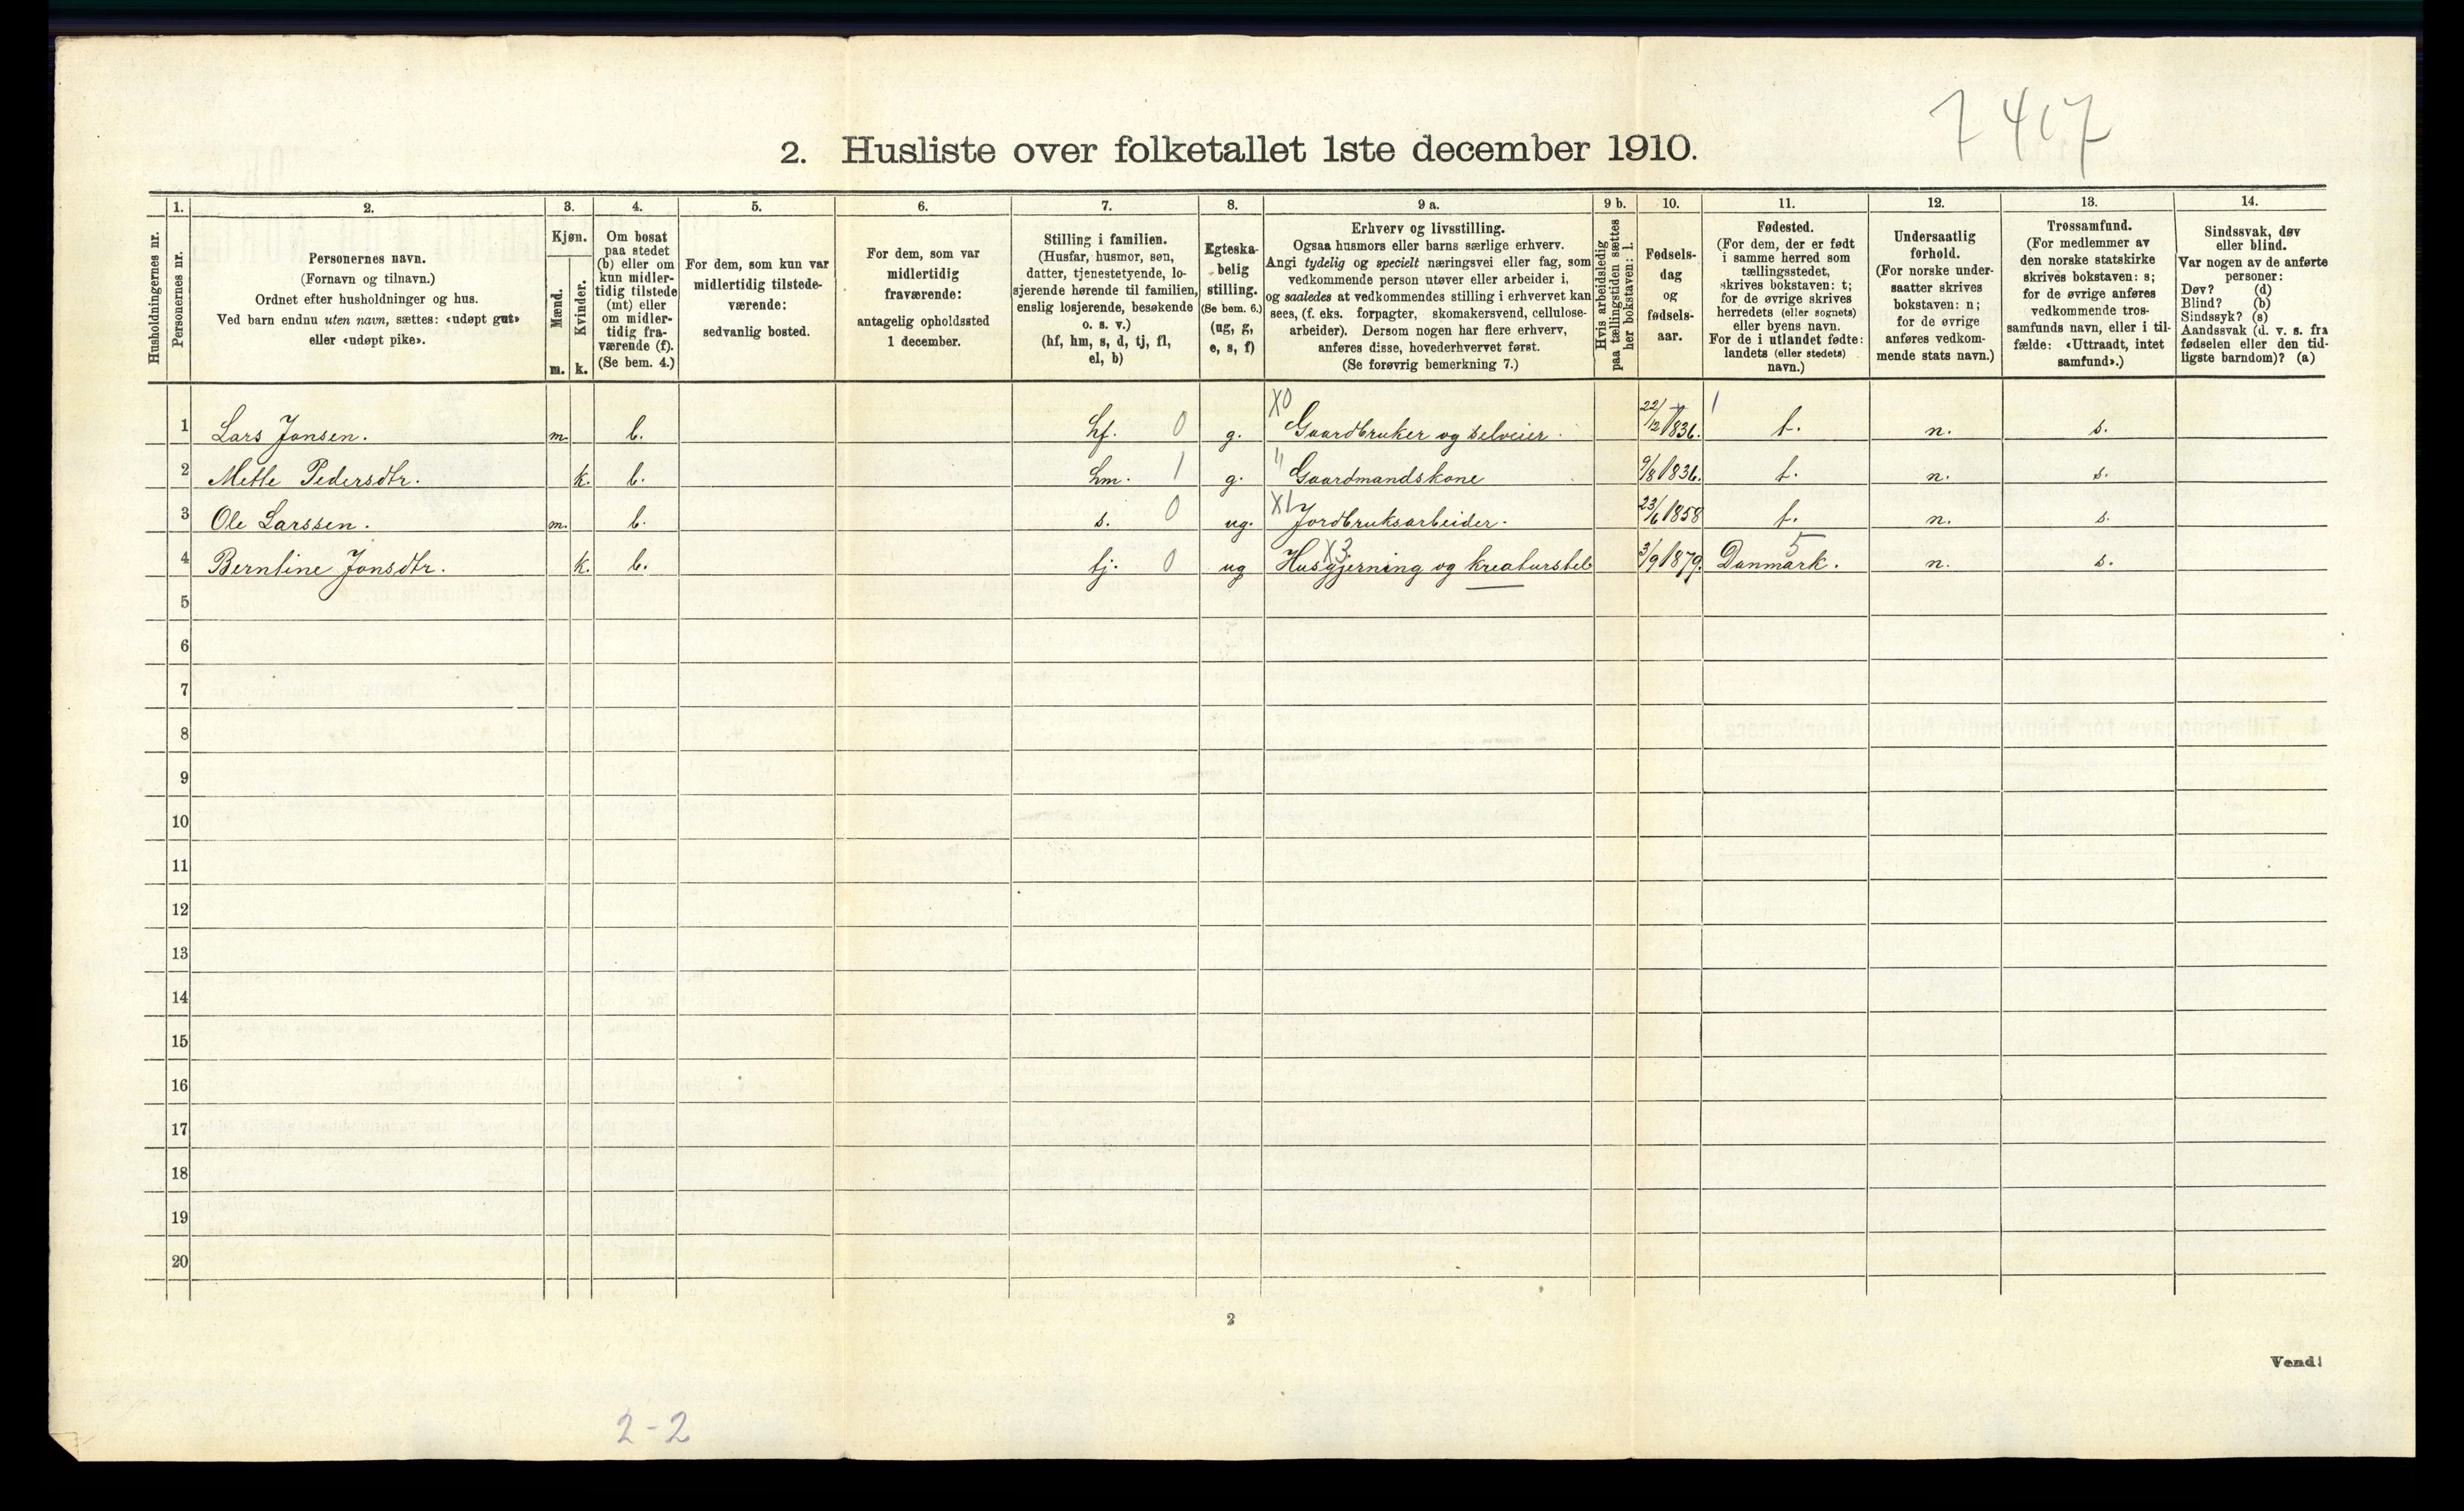 7417
2. Husliste over folketallet 1ste december 1910.
Husholdningernes nr.
1.
Personernes nr.
2.
Personernes navn.
(Fornavn og tilnavn.)
Ordnet efter husholdninger og hus.
Ved barn endnu uten navn, sættes: «udøpt gut»
eller «udøpt pike».
3.
Kjøn.
Mænd.
Kvinder.
m. k.
4.
Om bosat
paa stedet
(b) eller om
kun midler-
tidig tilstede
(mt) eller
om midler-
tidig fra-
værende (f).
(Se bem. 4.)
5.
For dem, som kun var
midlertidig tilstede-
værende:
sedvanlig bosted.
6.
For dem, som var
midlertidig
fraværende:
antagelig opholdssted
1 december.
7.
Stilling i familien.
(Husfar, husmor, søn,
datter, tjenestetyende, lo-
sjerende hørende til familien,
enslig losjerende, besøkende
o. s. v.)
(hf, hm, s, d, tj, fl,
el, b)
8.
Egteska-
belig
stilling.
(Se bem. 6.)
(ug, g,
e, s, f)
9 a.
Erhverv og livsstilling.
Ogsaa husmors eller barns særlige erhverv.
Angi tydelig og specielt næringsvei eller fag, som
vedkommende person utøver eller arbeider i,
og saaledes at vedkommendes stilling i erhvervet kan
sees, (f. eks. forpagter, skomakersvend, cellulose-
arbeider). Dersom nogen har flere erhverv,
anføres disse, hovederhvervet først.
(Se forøvrig bemerkning 7.)
9 b.
Hvis arbeidsledig
paa tællingstiden sættes
her bokstaven: l.
10.
Fødsels-
dag
og
fødsels-
aar.
11.
Fødested.
(For dem, der er født
i samme herred som
tællingsstedet,
skrives bokstaven: t;
for de øvrige skrives
herredets (eller sognets)
eller byens navn.
For de i utlandet fødte:
landets (eller stedets)
navn.)
12.
Undersaatlig
forhold.
(For norske under-
saatter skrives
bokstaven: n;
for de øvrige
anføres vedkom-
mende stats navn.)
13.
Trossamfund.
(For medlemmer av
den norske statskirke
skrives bokstaven: s;
for de øvrige anføres
vedkommende tros-
samfunds navn, eller i til-
fælde: «Uttraadt, intet
samfund».)
14.
Sindssvak, døv
eller blind.
Var nogen av de anførte
personer:
Døv? (d)
Blind? (b)
Sindssyk? (s)
Aandssvak (d. v. s. fra
fødselen eller den tid-
ligste barndom)? (a)
1 Lars Jonsen. m. b. hf. 0 g. X0 Gaardbruker og selveier. 22/12 1836. 1 t. n. s.
2 Mette Pedersdtr. k. b. hm. 1 g. " Gaardmandskone 9/8 1836. t. n. s.
3 Ole Larssen. m. b. s. 0 ug. X1 Jordbruksarbeider. 23/6 1858 t. n. s.
4 Berntine Jonsdtr. k. b. tj. 0 ug X3 Husgjerning og kreaturstel 3/9 1879. 5 Danmark. n. s.
5
6
7
8
9
10
11
12
13
14
15
16
17
18
19
20
2
Vend!
2-2